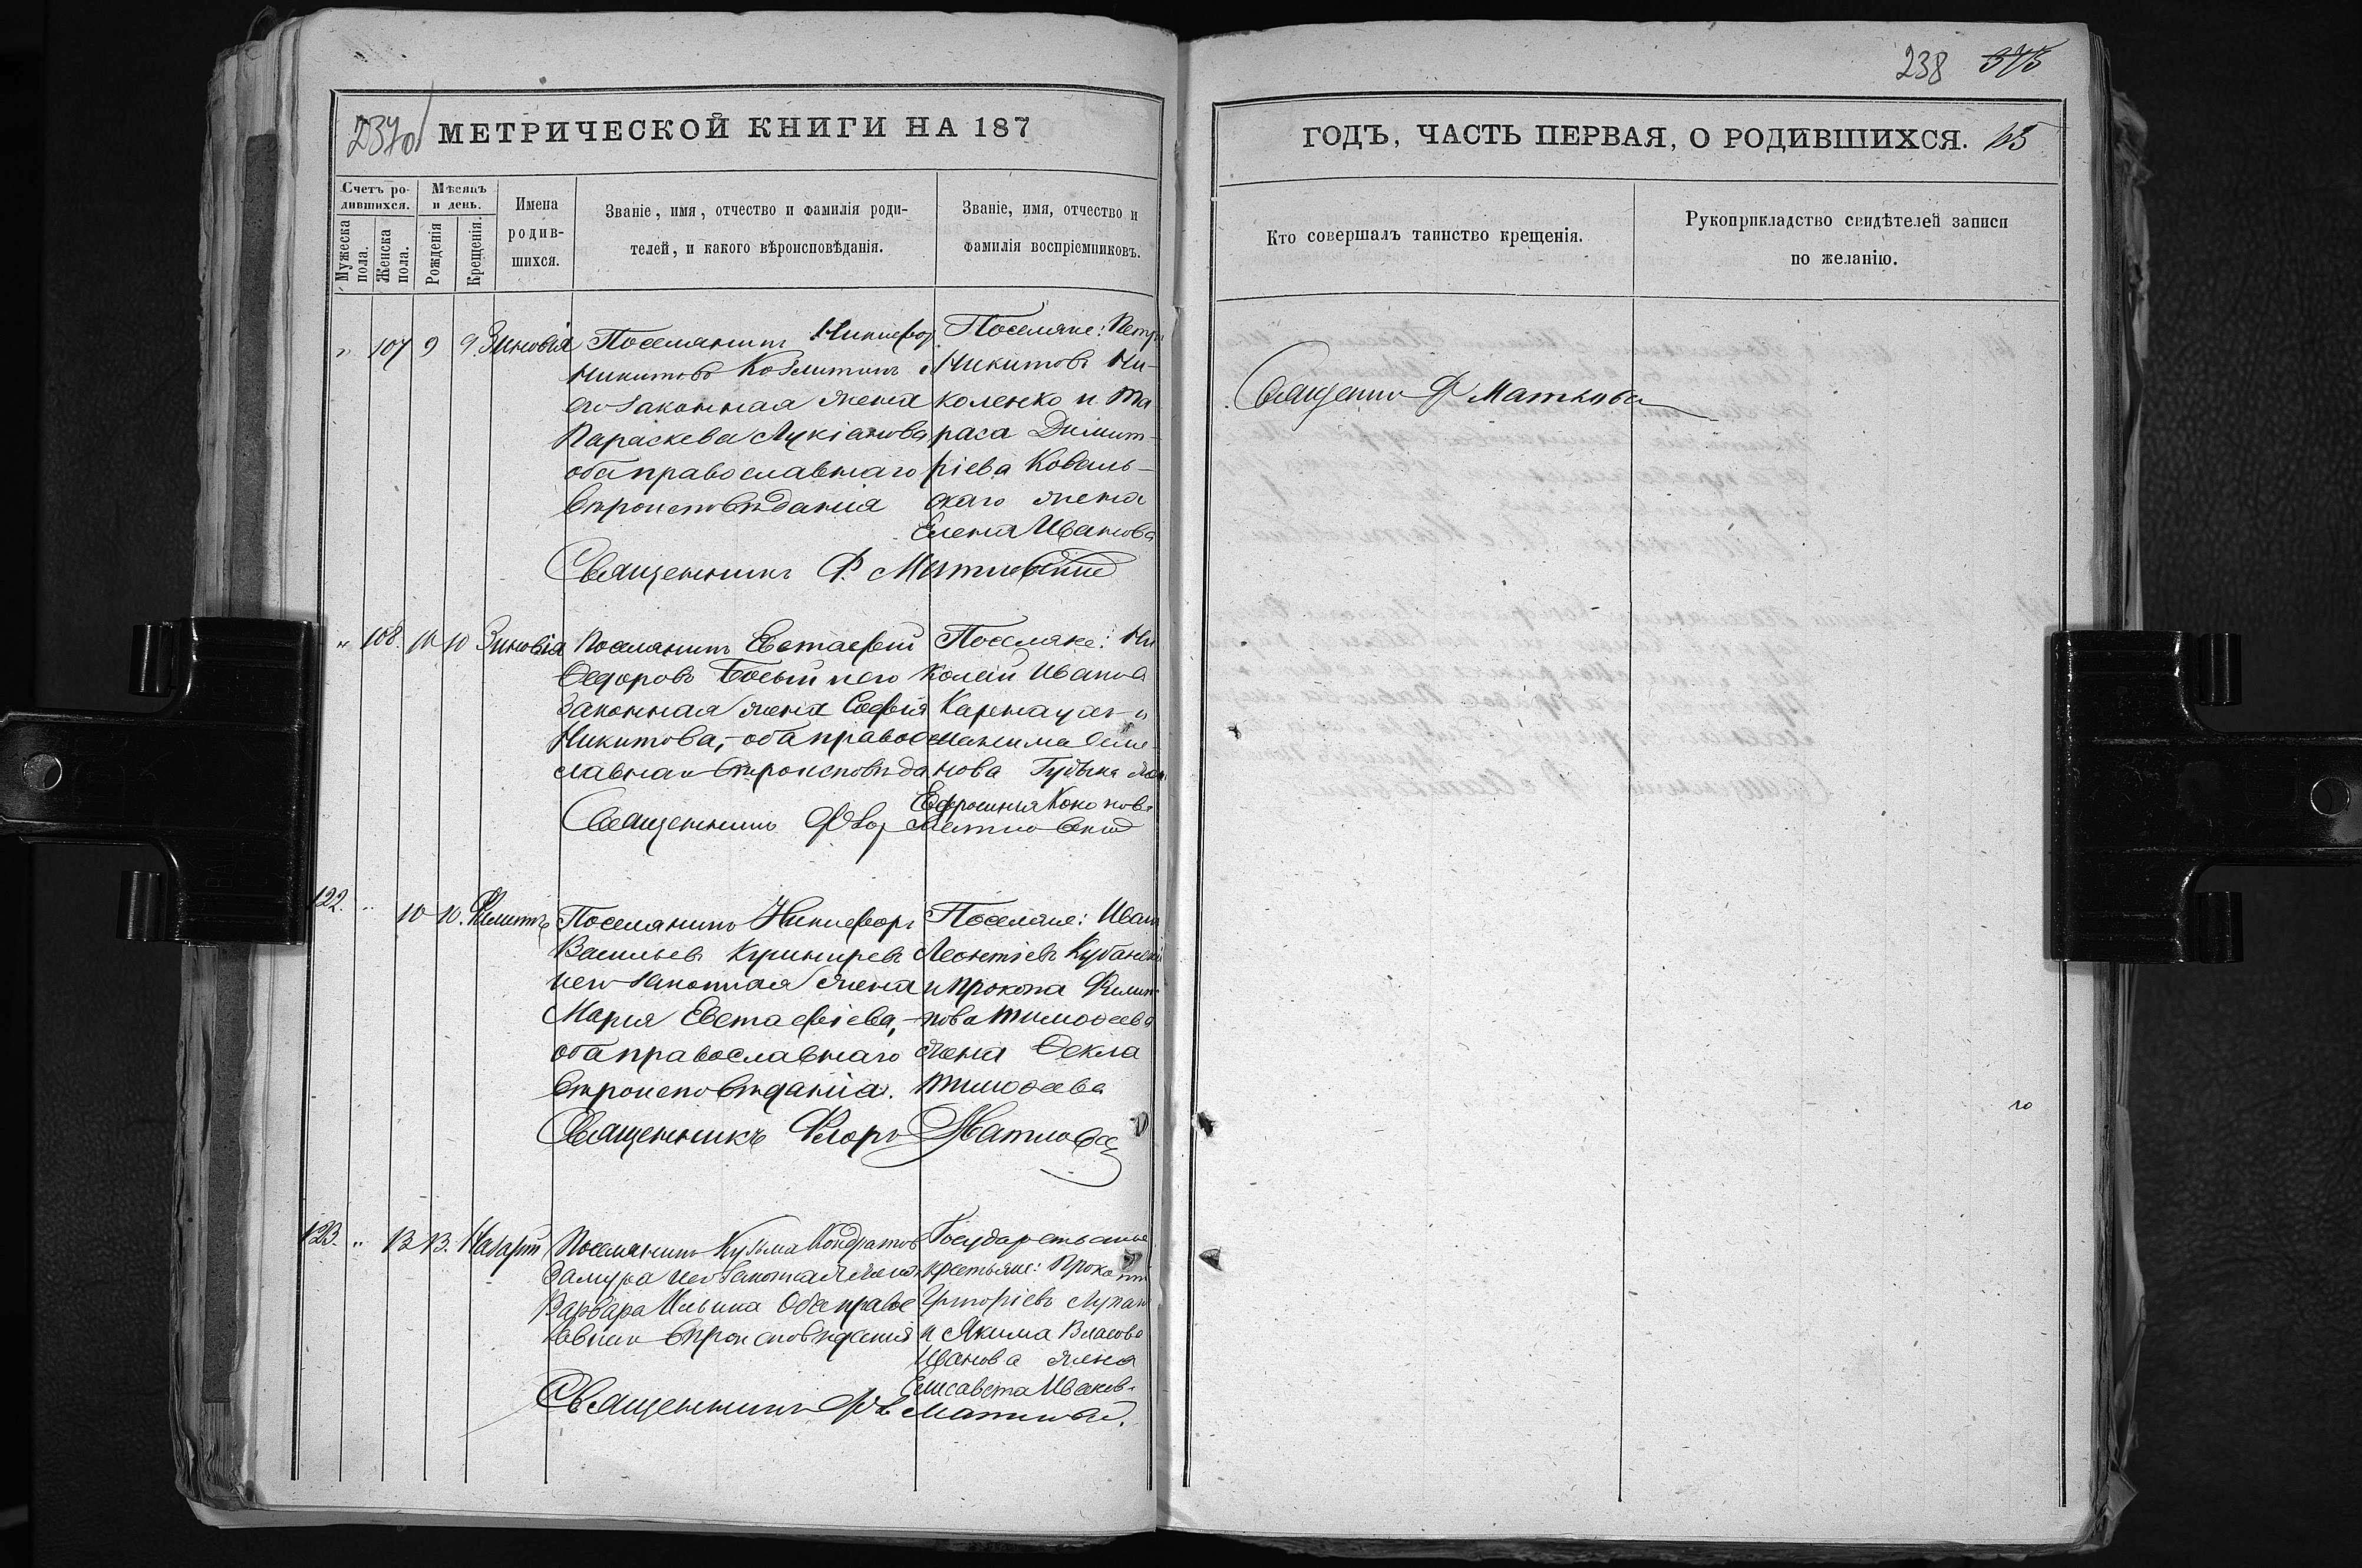 238 375
237об МЕТРИЧЕСКОЙ КНИГИ НА 187
ГОДЪ, ЧАСТЬ ПЕРВАЯ, О РОДИВШИХСЯ. 65
Счетъ ро-
дившихся.
Мужеска пола.
Женска пола.
Мѣсяцъ
и день.
Рожденія
Крещенія.
Имена
родив-
шихся.
Званіе, имя, отчество и фамилія роди-
телей, и какого вѣроисповѣданія.
Званіе, имя, отчество и
фамилія воспріемниковъ.
Кто совершалъ таинство крещенія.
Рукоприкладство свидѣтелей записи
по желанію.
" 107 9 9. Зиновія
Поселянинъ Никифоръ
Никитовъ и
его законная жена
Параскева Лукіанова
оба православнаго
вѣроисповѣданія
Поселяне: Петръ
Никитовъ Ни-
коленко и Та-
раса Димит-
ріева Коваль-
скаго жена
Елена Иванова
Священникъ Ф.
Священникъ Ф
" 108. 10 10 Зиновія
Поселянинъ Евстафій
Федоровъ и его
законная жена Софія
Никитова, - оба право-
славнаго вѣроисповѣда
Поселяне: Ни
колай Иванов
и
нова жен
Ефросинія
Священникъ
122. " 10 10. Филиппъ
Поселянинъ Никифоръ
Васильевъ
и его законная жена
Марія Евстафіева, -
оба православнаго
вѣроисповѣданія.
Поселяне: Иван
Леонтіевъ
и Прокопа Филип-
пова Тимофеева
жена Фекла
Тимофеева
Священникъ Флоръ
123. " 13 13. Назарій
Поселянинъ Кузьма Кондратов
и его законная жена
Варвара Ильина Оба правос
лавнаго вѣроисповѣданія
Государственные
крестьяне: Прокопій
Григоріевъ
и Якима Власова
Иванова жена
Елисавета Иванов.
Священникъ